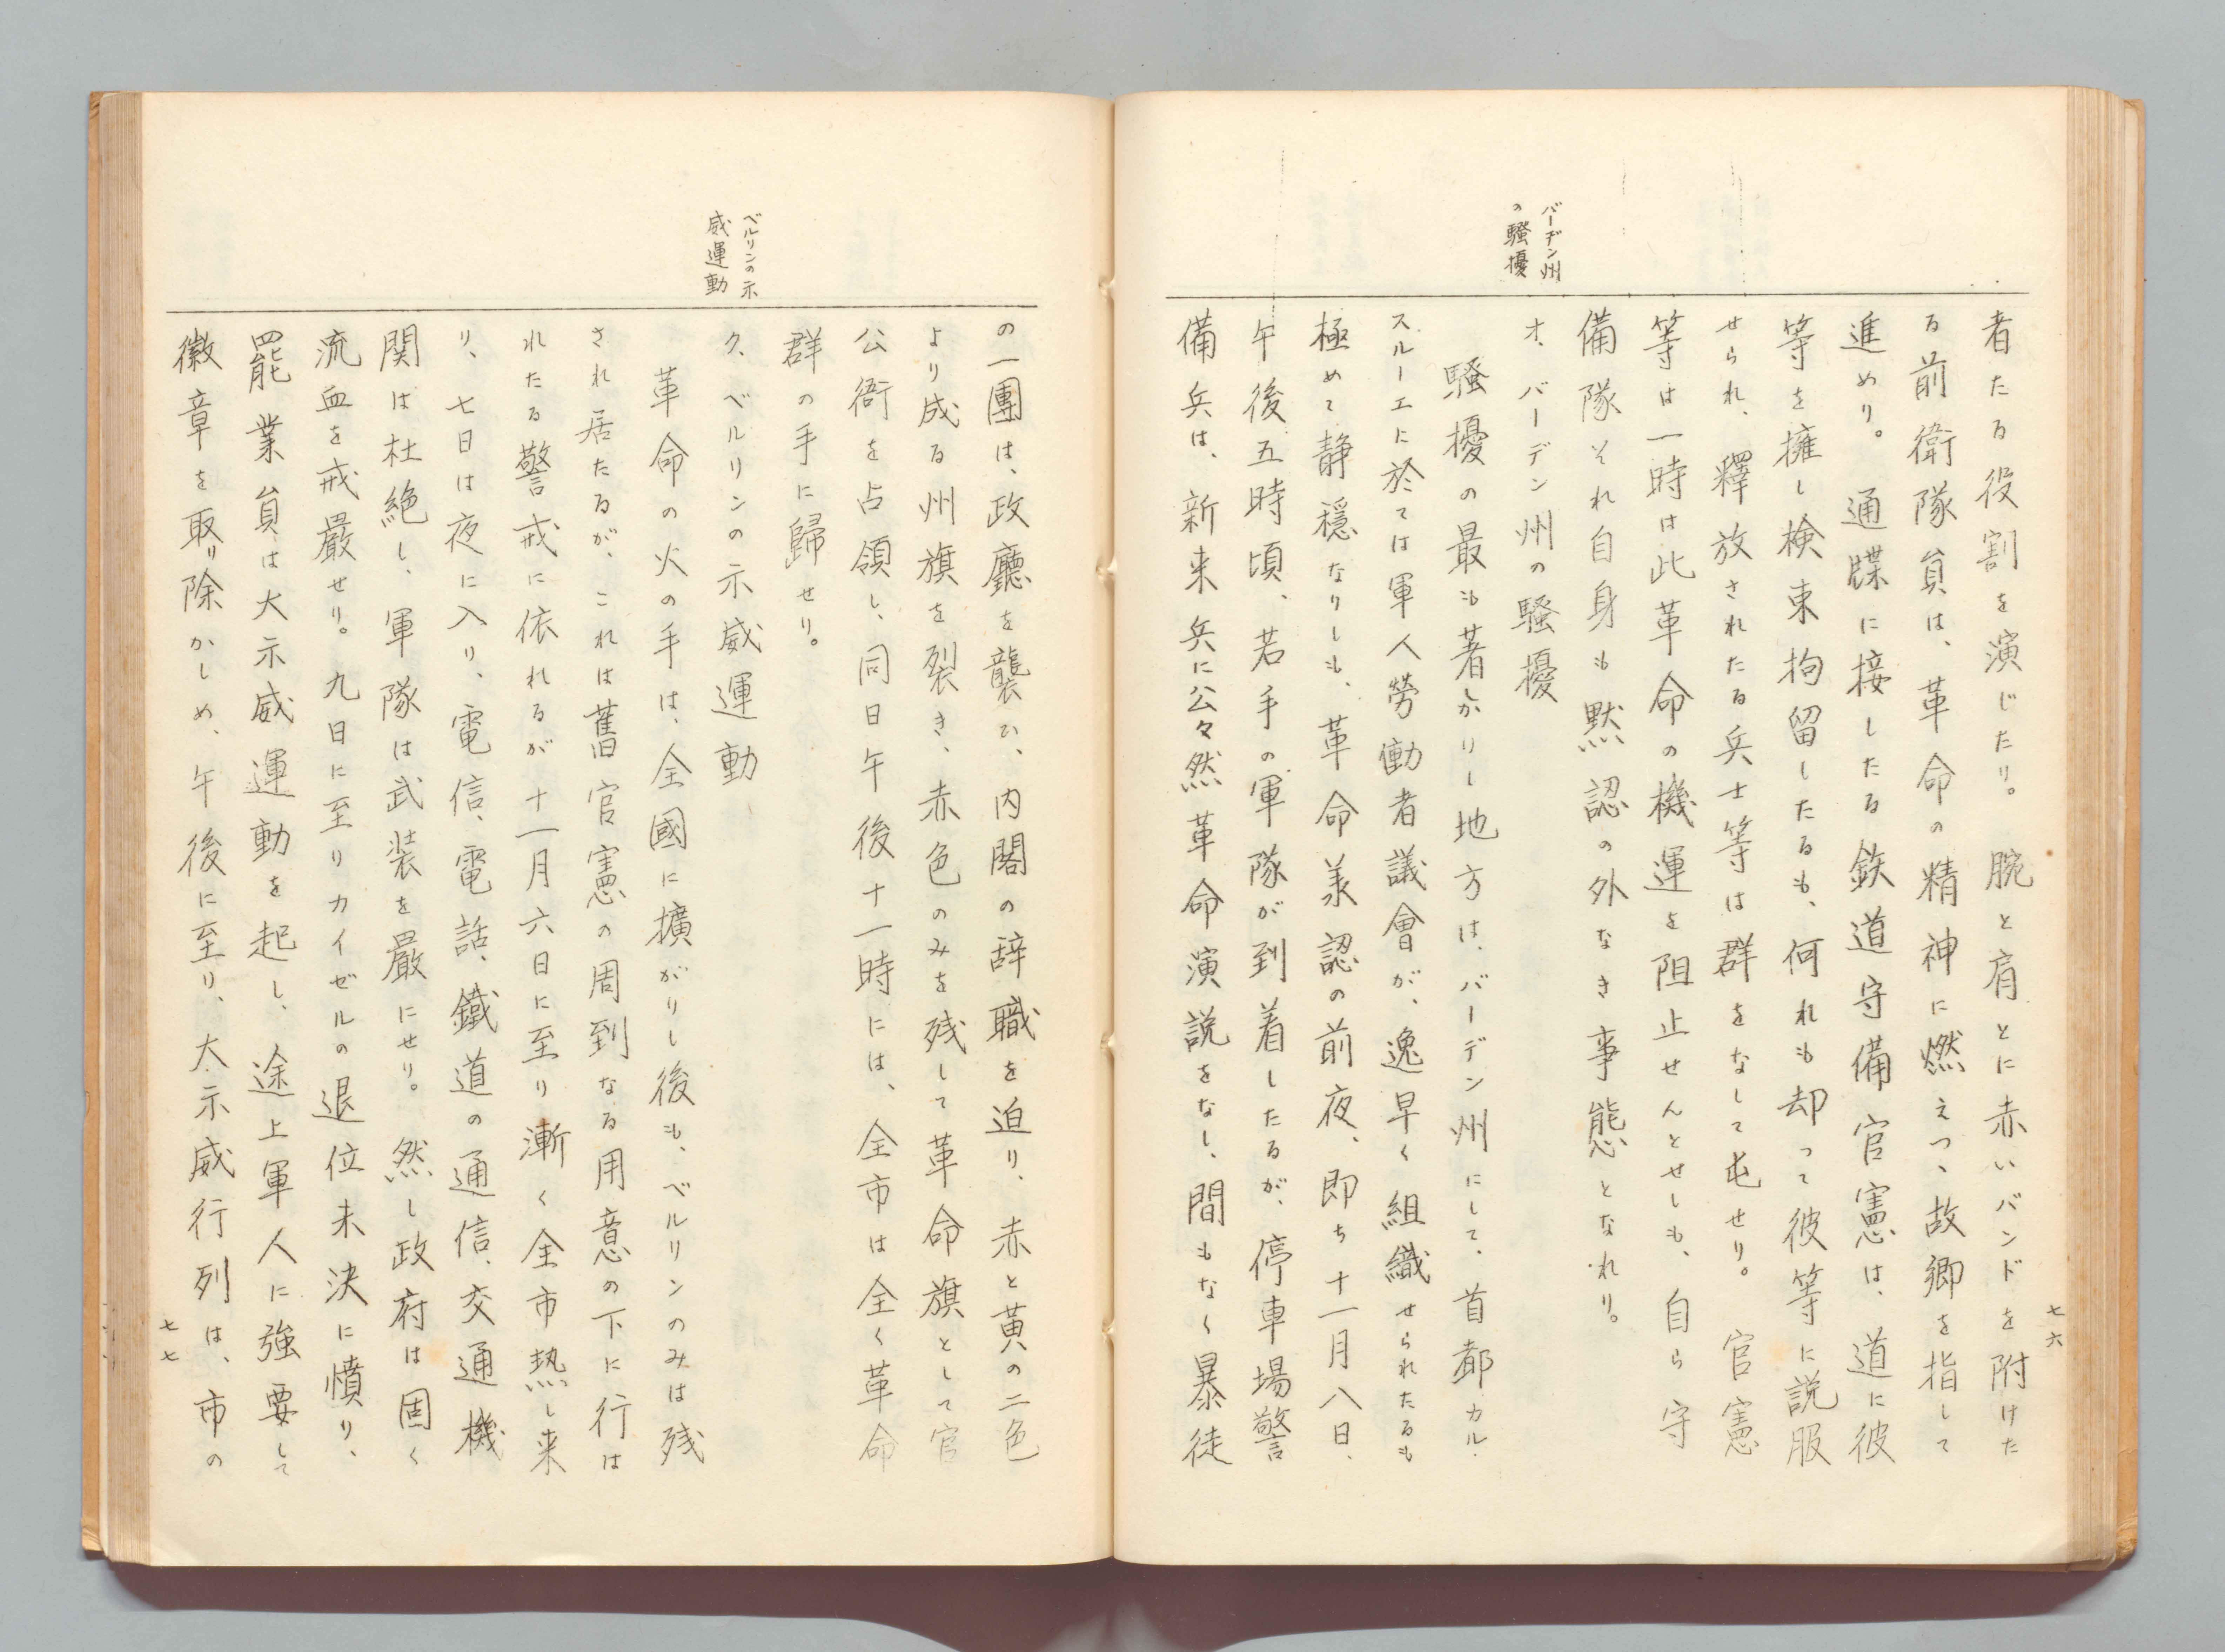 七六
バーデン州
の騒擾
者たる役割を演じたり。腕と肩とに赤いバンドを附けた
る前衛隊員は、革命の精神に燃えつゝ故郷を指して
進めり。通牒に接したる鉄道守備官憲は、道に彼
等を擁し検束拘留したるも、何れも却って彼等に説服
せられ、釋放されたる兵士等は群をなして屯せり。官憲
等は一時は此革命の機運を阻止せんとせしも、自ら守
備隊それ自身も黙認の外なき事態となれり。
オ、バーデン州の騒擾
騒擾の最も著しかりし地方は、バーデン州にして、首都カル・
スルーエに於ては軍人勞働者議會が、逸早く組織せられたるも
極めて静穏なりしも、革命承認の前夜、即ち十一月八日、
午後五時頃、若手の軍隊が到着したるが、停車場警
備兵は、新来兵に公々然革命演説をなし、間もなく暴徒
ベルリンの示
威運動
の一團は、政廳を襲ひ、内閣の辞職を迫り、赤と黄の二色
より成る州旗を裂き、赤色のみを残して革命旗として官
公衙を占領し、同日午後十一時には、全市は全く革命
群の手に歸せり。
ク、ベルリンの示威運動
革命の火の手は、全國に擴がりし後も、ベルリンのみは残
され居たるが、これは舊官憲の周到なる用意の下に行は
れたる警戒に依れるが十一月六日に至り漸く全市熱し来
り、七日は夜に入り、電信、電話、鐵道の通信、交通機
関は杜絶し、軍隊は武装を嚴にせり。然し政府は固く
流血を戒嚴せり。九日に至りカイゼルの退位未決に憤り、
罷業員は大示威運動を起し、途上軍人に強要して
徽章を取り除かしめ、午後に至り、大示威行列は、市の
七七